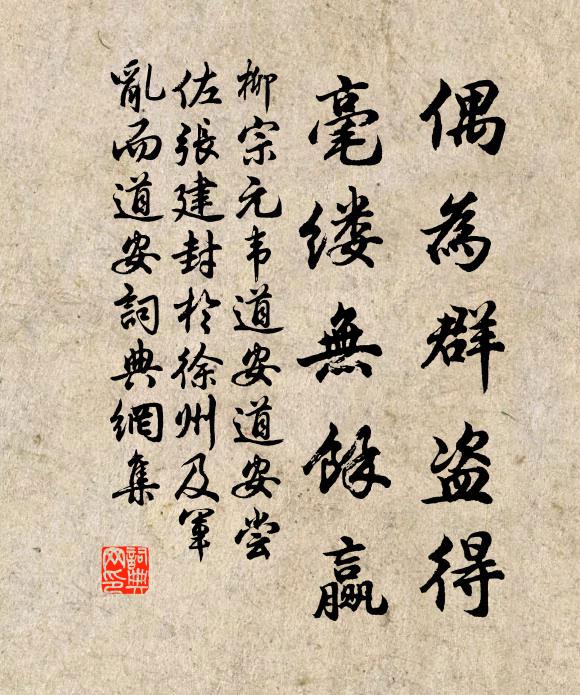 偶為群盗得
毫缕無餘贏
柳宗元韦道安道安尝
佐張建封於徐州及軍
亂而道安詞典網集
詞典网印